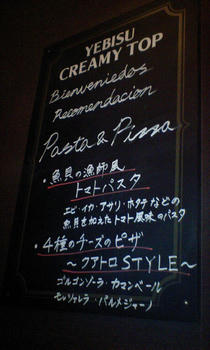 YEBISU
CREAMY TOP
Bienveniedos
Recomendacion
Pasta & Pizza
・魚貝の漁師風
トマトパスタ
エビ・イカ・アサリ・ホタテなどの
魚貝を加えたトマト風味のパスタ
・4種のチーズのピザ
〜クアトロSTYLE〜
ゴルゴンゾーラ・カマンベール
モッツァレラ・パルメジャーノ